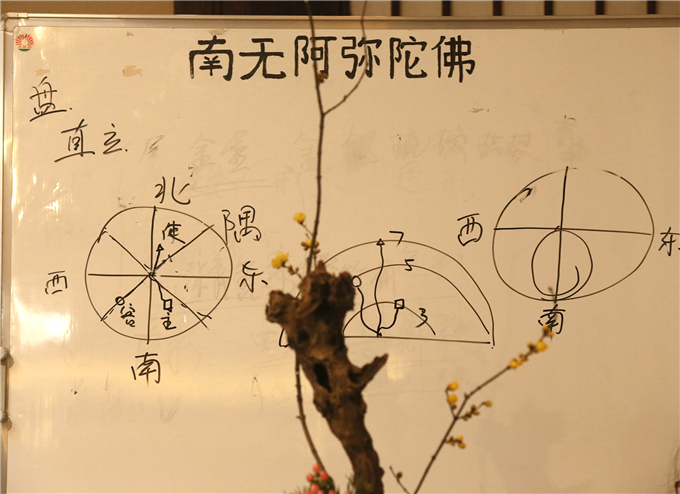 南无阿弥陀佛
盘.
直立.
北
使
隅
西
东
客
主
南
7
5
3
西
东
南